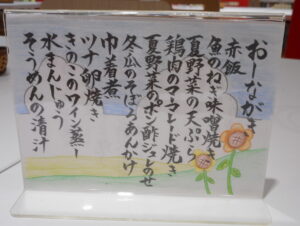 おしながき
赤飯
魚のねぎ味噌焼き
夏野菜の天ぷら
鶏肉のマーマレード焼き
夏野菜のポン酢ジュレのせ
冬瓜のそぼろあんかけ
巾着煮
ツナ卵焼き
きのこのワイン蒸し
水まんじゅう
そうめんの清汁